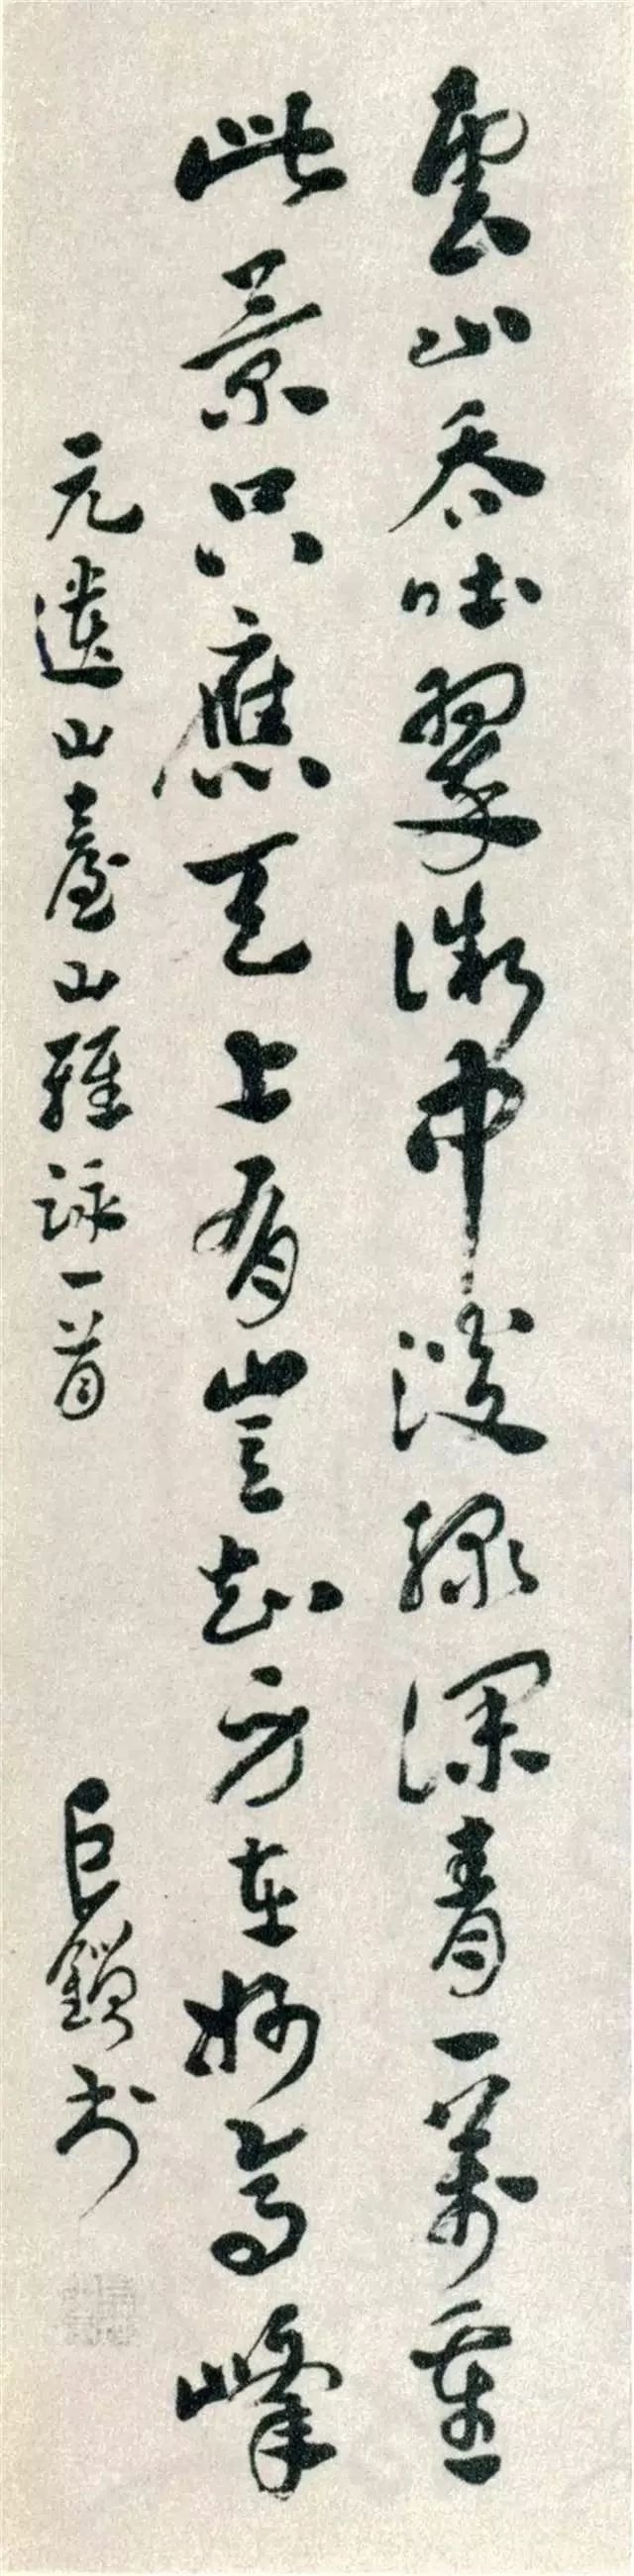 雲山吞吐翠微中淡綠深青一萬重
此景只應天上有豈知身在妙高峰
元遺山臺山雜詠一首
巨鎖書